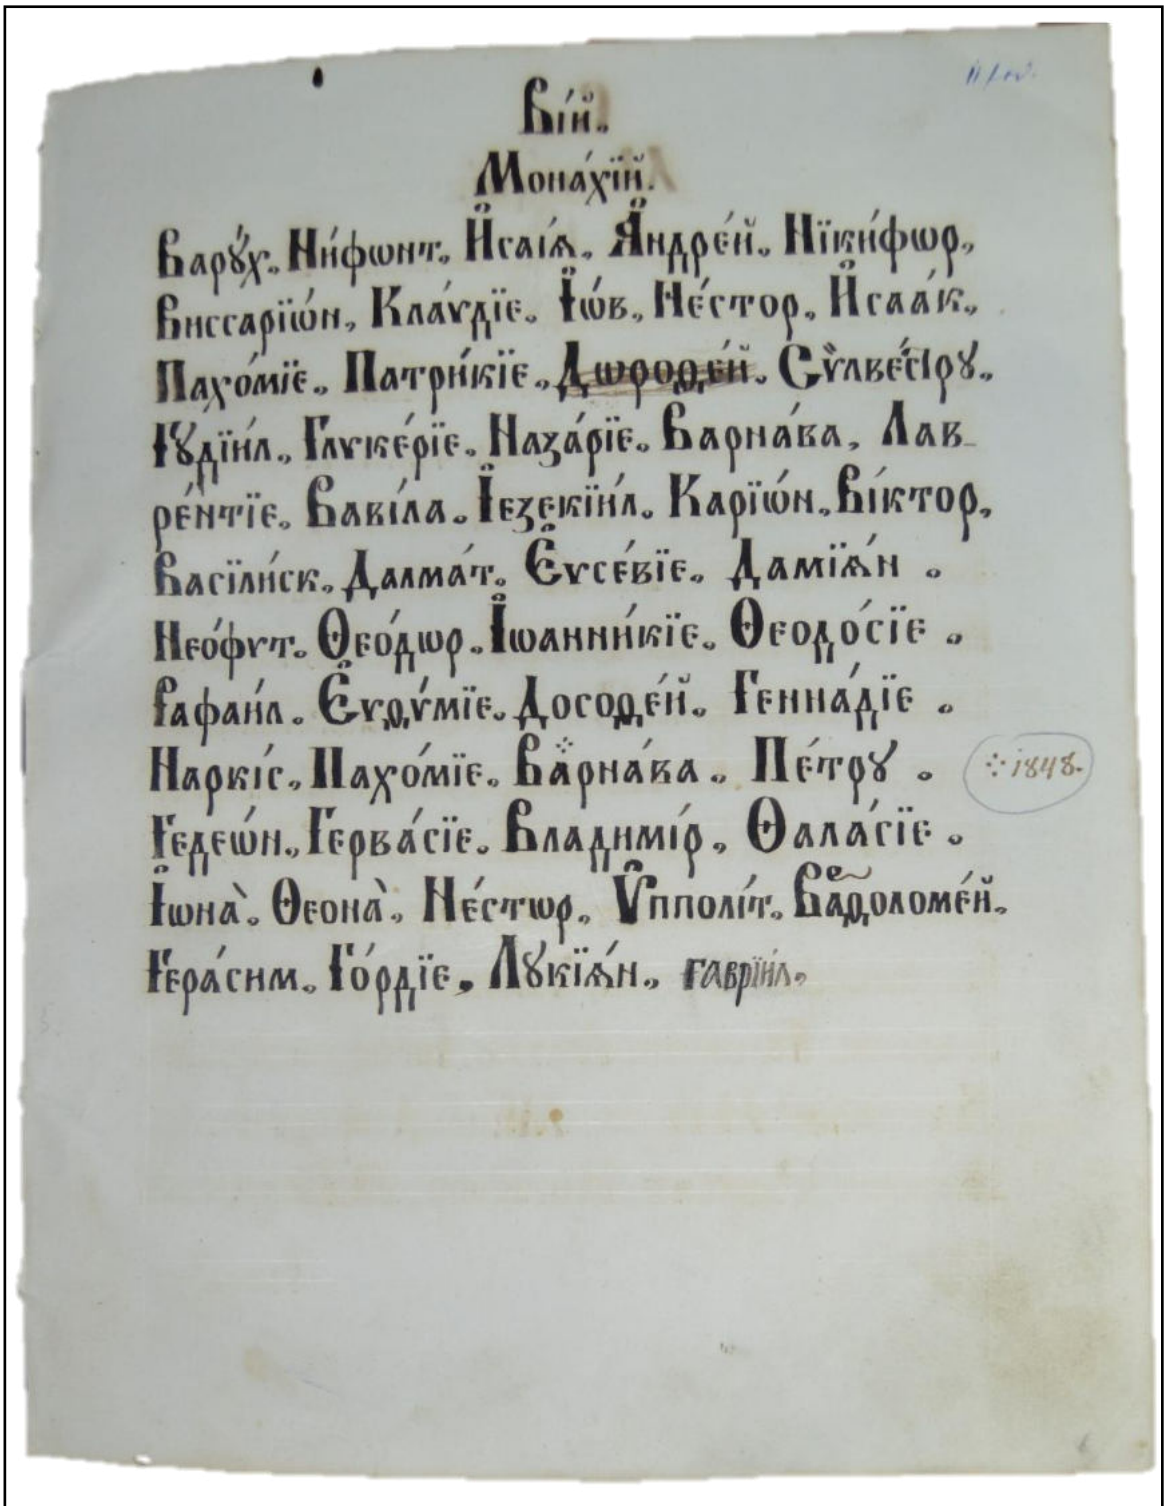 Ві́й.
Мона́хїй.
Вару́х. Ни́фѡнт. И҆саі́ѧ. А҆ндре́й. Нїки́фѡр.
Виссарїѡ́н. Кла́ѵдїе. І҆ѡ́в. Не́стор. И҆саа́к.
Пахо́мїе. Патри́кїе. Дѡроѳе́й. Сѵлве́стрꙋ.
Іꙋдїи́л. Глѵке́рїе. Наза́рїе. Варна́ва. Лав-
ре́нтїе.Ваві́ла. І҆езекїи́л. Карїѡ́н. Ві́ктор.
Васїли́ск. Далма́т. Є҆ѵсе́вїе. Дамїѧ́н.
Нео́фѵт. Ѳео́дѡр. І҆ѡанни́кїе. Ѳеодо́сїе.
Рафаи́л. Є҆ѵѳѵ́мїе. Досоѳе́й. Генна́дїе.
Наркі́с. Пахо́мїе. Варна́ва. Пе́трꙋ. ⁘ 1848.
Гедеѡ́н. Герва́сїе. Владимі́р. Ѳала́сїе.
І҆ѡна̀. Ѳеона̀. Не́стѡр. Ѵ҆пполі́т. Варѳоломе́й.
Гера́сим. Го́рдїе. Лꙋкїѧ́н. гаврїи́л.